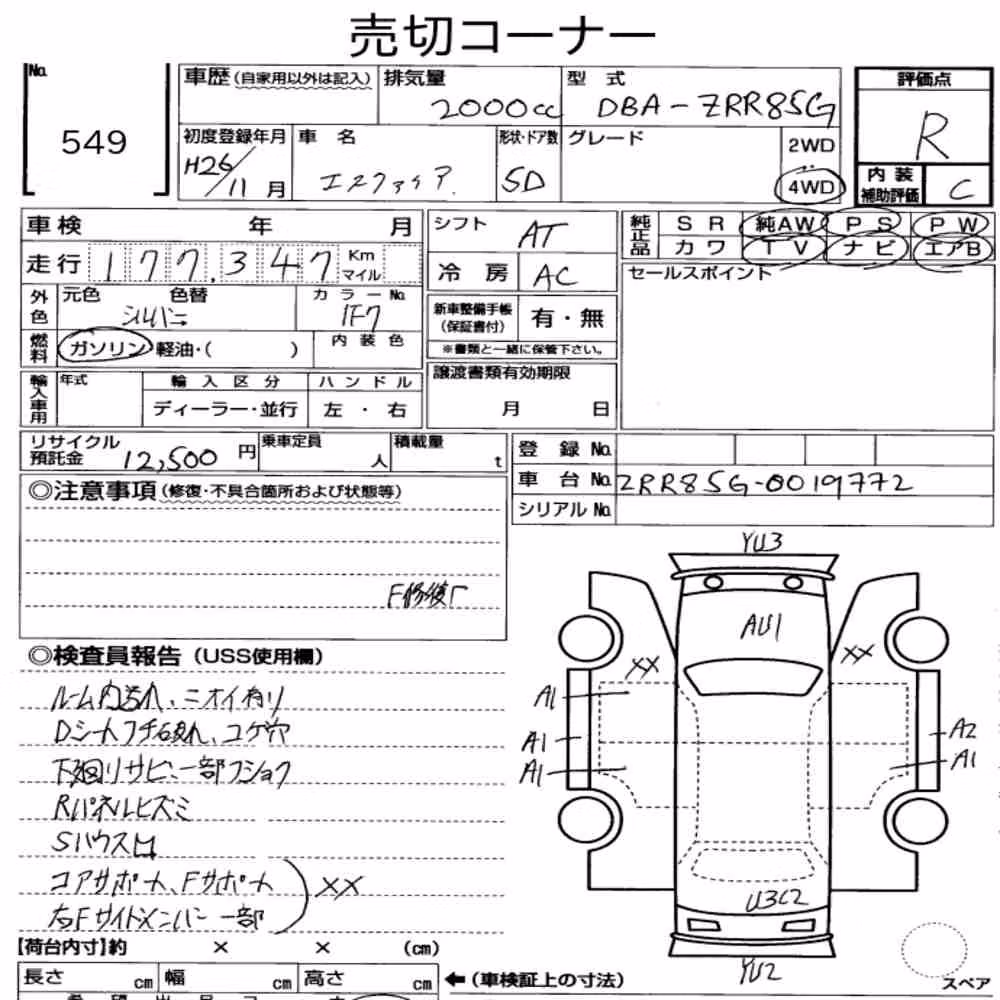 売切コーナー
No. 549
車歴 (自家用以外は記入) 排気量 2000cc 型式 DBA-ZRR85G 評価点 R
初度登録年月 H26/11月 車名 エスクァイア. 形状・ドア数 5D グレード 2WD 4WD
内装補助評価 C
車検 年 月 シフト AT 純正品 SR 純AW PS PW
走行 177,347 Km マイル 冷房 AC カワ TV ナビ エアB
外色 元色 色替 シルバー カラーNo. 1F7 セールスポイント
新車整備手帳 (保証書付) 有・無
燃料 ガソリン 軽油・( ) 内装色 ※書類と一緒に保管下さい。
輸入車用 年式 輸入区分 ハンドル 譲渡書類有効期限
ディーラー・並行 左・右 月 日
リサイクル預託金 12,500円 乗車定員 人 積載量 t 登録No.
車台No. ZRR85G-0019772
シリアルNo.
◎注意事項 (修復・不具合箇所および状態等)
F修復
◎検査員報告 (USS使用欄)
ルーム内汚れ、ニオイ有り
Dシートフチ破れ、コゲ穴
下廻りサビ、一部フショク
Rパネルヒズミ
Sハウス凹
コアサポート、Fサポート
右Fサイドメンバー一部
XX
YU3
AU1
XX XX
A1
A1 A2
A1 A1
U3C2
YU2
スペア
【荷台内寸】約 × × (cm)
長さ cm 幅 cm 高さ cm ←(車検証上の寸法)